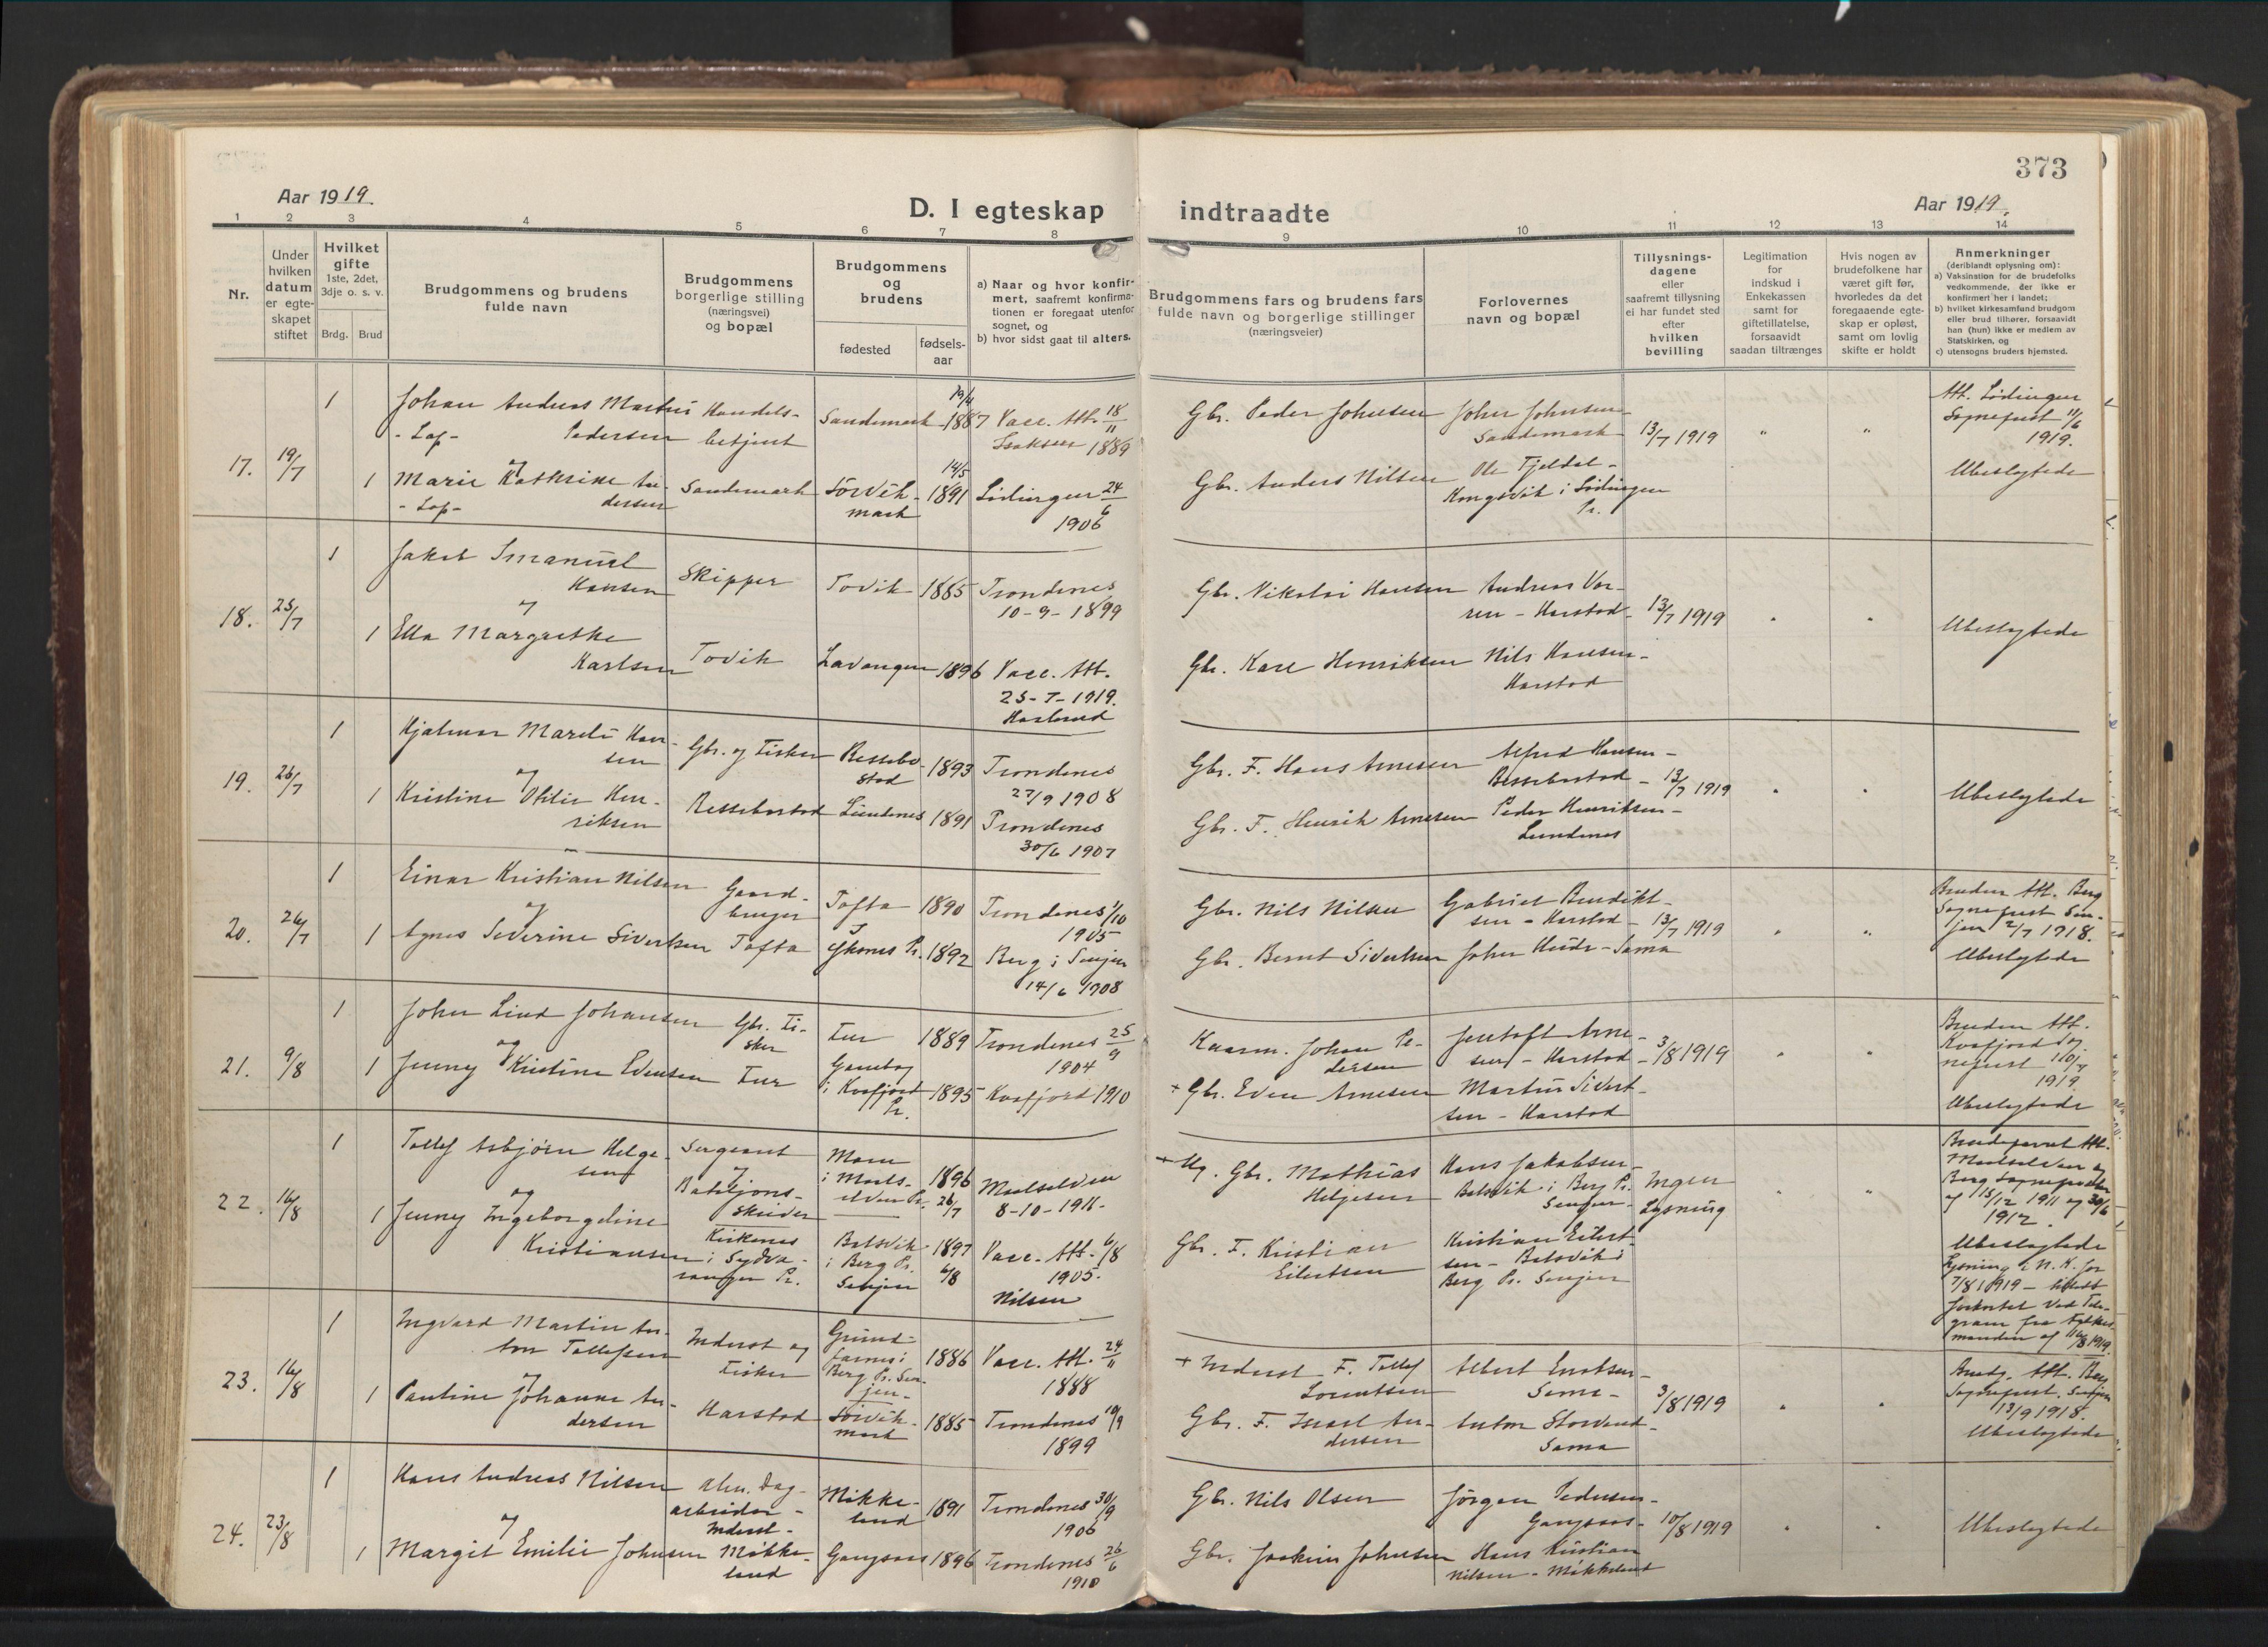 373
Aar 1919.
D. I egteskap
indtraadte
Aar 1919.
1 2 3 4 5 6 7 8 9 10 11 12 13 14
Nr.
Under
hvilken
datum
er egte-
skapet
stiftet
Hvilket
gifte
1ste, 2det,
3dje o. s. v.
Brdg. Brud
Brudgommens og brudens
fulde navn
Brudgommens
borgerlige stilling
(næringsvei)
og bopæl
Brudgommens
og
brudens
fødested
fødsels-
aar
a) Naar og hvor konfir-
mert, saafremt konfirma-
tionen er foregaat utenfor
sognet, og
b) hvor sidst gaat til alters.
Brudgommens fars og brudens fars
fulde navn og borgerlige stillinger
(næringsveier)
Forlovernes
navn og bopæl
Tillysnings-
dagene
eller
saafremt tillysning
ei har fundet sted
efter
hvilken
bevilling
Legitimation
for
indskud i
Enkekassen
samt for
giftetillatelse,
forsaavidt
saadan tiltrænges
Hvis nogen av
brudefolkene har
været gift før,
hvorledes da det
foregaaende egte-
skap er opløst,
samt om lovlig
skifte er holdt
Anmerkninger
(deriblandt oplysning om):
a) Vaksination for de brudefolks
vedkommende, der ikke er
konfirmert her i landet;
b) hvilket kirkesamfund brudgom
eller brud tilhører, forsaavidt
han (hun) ikke er medlem av
Statskirken, og
c) utensogns bruders hjemsted.
17. 19/7
1 Johan Andreas Martin
- Lap - Pedersen
og
1 Marie Kathrine An-
- Lap - dersen
Handels-
betjent
Sandemark
Sandemark 19/4 1887
Sörvik-
mark 14/5 1891
Vacc. Att. 18/11
Isaksen 1889
Lödingen 24/6
1906
Gbr. Peder Johnsen
Gbr. Anders Nilsen
Johan Johnsen
Sandemark
Ole Fjeldal -
Kongsvik i Lödingen
Pr.
13/7 1919 " "
Att. Lödingen
Sogneprest 11/6
1919.
Ubeslegtede
18. 25/7
1 Jakob Emanuel
Hansen
og
1 Ella Margrethe
Karlsen
Skipper
Tovik
Tovik 1885
Lavangen 1896
Trondenes
10-9-1899
Vacc. Att.
25-7-1919.
Gbr. Nikolai Hansen
Gbr. Karl Henriksen
Andreas
- Harstad
Nils Hansen -
Harstad
13/7 1919
Ubeslegtede
19. 26/7
1 Hjalmar Han-
sen
og
1 Kristine Otilie Hen-
riksen
Gbr. og Fisker
Ressebostad
Ressebo-
stad 1893
Lundenes 1891
Trondenes
27/9 1908
Trondenes
30/6 1907
Gbr. F. Hans Arnesen
Gbr. F. Henrik Arnesen
Alfred Hansen -
Ressebostad
Peder Henriksen -
Lundenes
13/7 1919
Ubeslegtede
20. 26/7
1 Einar Kristian Nilsen
og
1 Agnes Severine Sivertsen
Gaard-
bruger
Tofta
Tofta 1890
Öksnes Pr. 1892
Trondenes 1/10
1905
Berg i Senjen
14/6 1908
Gbr. Nils Nilsen
Gbr. Bernt Sivertsen
Gabriel Benedikt-
sen - Harstad
Johan - Sama
13/7 1919
Bruden Att. Berg
Sogneprest Sen-
jen 2/7 1918.
Ubeslegtede
21. 9/8
1 Johan Lind Johansen
og
1 Jenny Kristine Edensen
Gbr. Fi-
sker
1889
i Kvæfjord
Pr. 1895
Trondenes 25/9
1904
Kvæfjord 1910
Kaarm. Johan Pe-
dersen
+ Gbr. Eden Arnesen
Jentoft Arne-
sen - Harstad
Martin Sivert-
sen - Harstad
3/8 1919
Bruden Att.
Kvæfjord Sog-
neprest
1919
Ubeslegtede
22. 16/8
1 Tollef Asbjørn Helge-
sen
og
1 Jenny Ingeborgeline
Kristiansen
Sergeant
og
Bataljons-
skriver
Kirkenes
i Sydva-
ranger Pr.
i Maals-
elven Pr. 1896 26/7
Botsvik
i Berg Pr.
Senjen 1897 6/8
Maalselven
8-10-1911-
Vacc. Att. 6/8
1905.
Nilsen
+ Gbr. Mathias
Helgesen
Gbr. F. Kristian
Eilertsen
Hans Jakobsen -
Botsvik i Berg Pr.
Senjen -
Kristian Eilert-
sen - Botsvik i
Berg Pr. Senjen
Ingen
Lysning
Brudeparret Att.
Maalselven og
Berg Sogneprester
af 15/12 1911 og 30/6
1912.
Ubeslegtede
Lysning i N. K. for
7/8 1919
forkortet ved Tele-
gram fra Fylkes-
manden af 16/8 1919.
23. 16/8
1 Ingvard Martin An-
ton Tollefsen
og
1 Pauline Johanne An-
dersen
Inderst og
Fisker
Harstad
Grund-
farnes i
Berg Pr. Sen-
jen - 1886
Sörvik-
mark 1885
Vacc. Att. 24/11
1888
Trondenes 10/9
1899
+ Inderst F. Tollef
Lorentsen
Gbr. F. Israel An-
dersen
Albert Enoksen -
Sama -
Anton Storvand -
Sama
3/8 1919
Brudg. Att. Berg
Sogneprest, Senjen
13/9 1918.
Ubeslegtede
24. 23/8
1 Hans Andreas Nilsen
og
1 Margit Emilie Johnsen
alm. Dag-
arbeider -
Inderst -
Mökke-
land
Mökke-
land 1891
Gangsaas 1896
Trondenes 30/9
1906
Trondenes 26/6
1910
Gbr. Nils Olsen
Gbr. Joakim Johnsen
Jörgen Pedersen -
Gangsaas -
Hans Kristian
Nilsen - Mökkeland
10/8 1919
Ubeslegtede